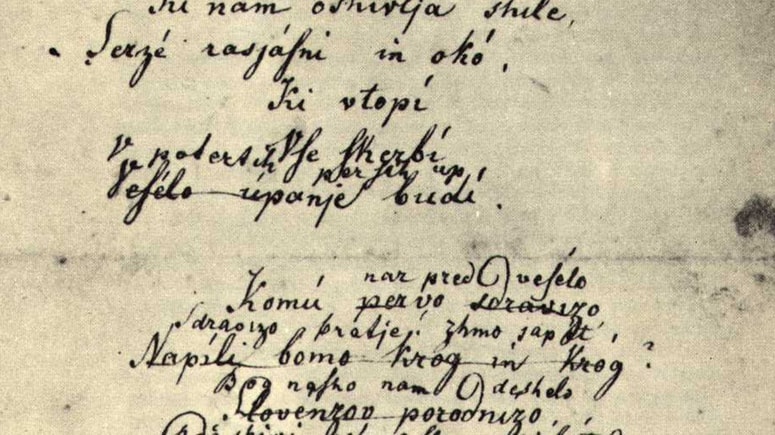 Ki nam oshivlja shile,
Serzé rasjásni in okó,
Ki vtopí
Vse skerbí
V potertih persih up
Vesélo úpanje budí.
nar pred vesélo
Komú pervo sdravizo
Sdravizo bratje! zhmo sapét',
Napíli bomo krog in krog?
Bog nasho nam deshelo
Slovenzov porodnizo,